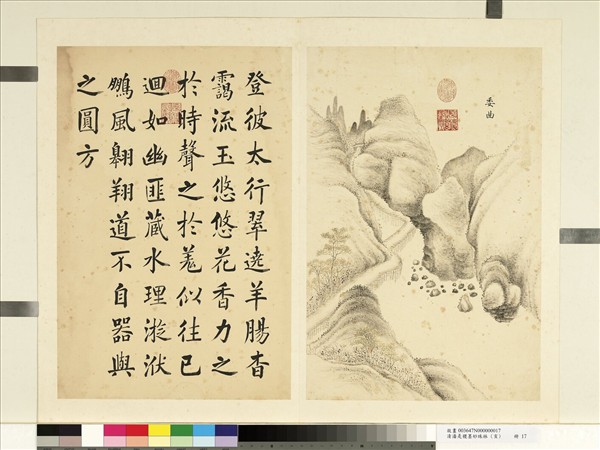 委曲
登彼太行翠遶羊腸杳
靄流玉悠悠花香力之
於時聲之於羗似往已
迴如幽匪藏水理漩洑
鵬風翱翔道不自器與
之圓方
故畫 003647N000000017
清潘是稷墨妙珠林（亥） 幅 17